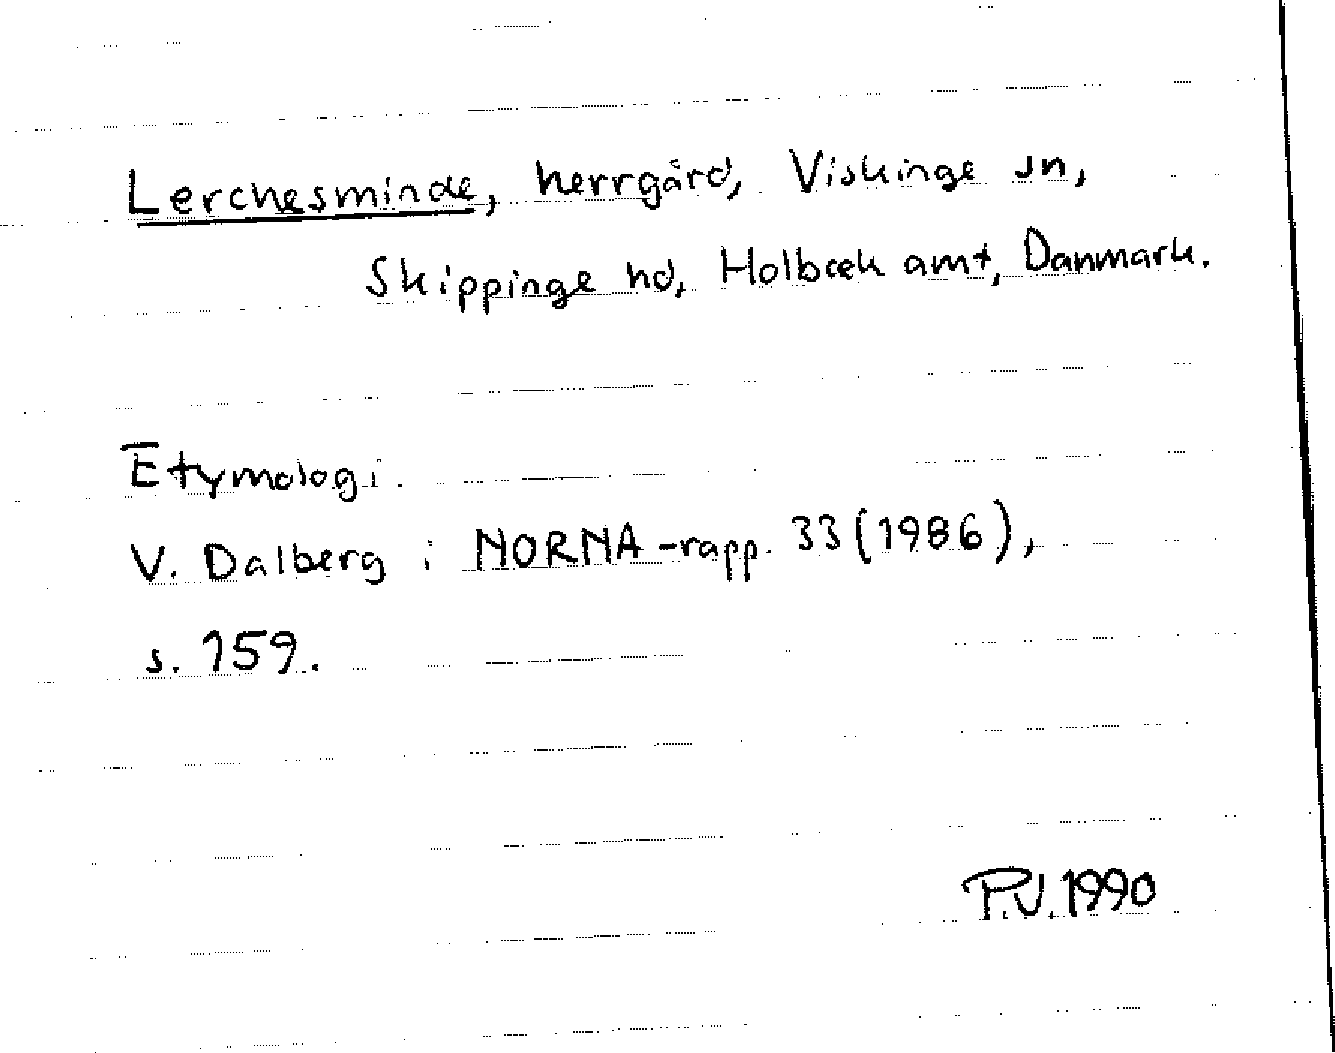 Lerchesminde, herrgård, Viskinge sn,
Skippinge hd, Holbæk amt, Danmark.
Etymologi.
V. Dalberg i NORNA-rapp. 33 (1986),
s. 159.
P.V. 1990